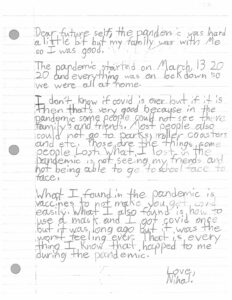 Dear future self, the pandemic was hard
a little bit but my family was with me
so I was good.
The pandemic started on March, 13 20
20 and everything was on lockdown so
we were all at home.
I don't know if covid is over but if it is
then that's very good because in the
pandemic some people could not see there
family's and friends. Most people also
could not go to parks, roller coasters
and etc. Those are the things some
people lost. What I lost in the
pandemic is not seeing my friends and
not being able to go to school face to
face.
What I found in the pandemic is
vaccines to not make you get covid
easily. What I also found is how to
use a mask and I got covid once
but it was long ago but it was the
worst feeling ever. That is every
thing I know that happed to me
during the pandemic.
Love,
Nihal.